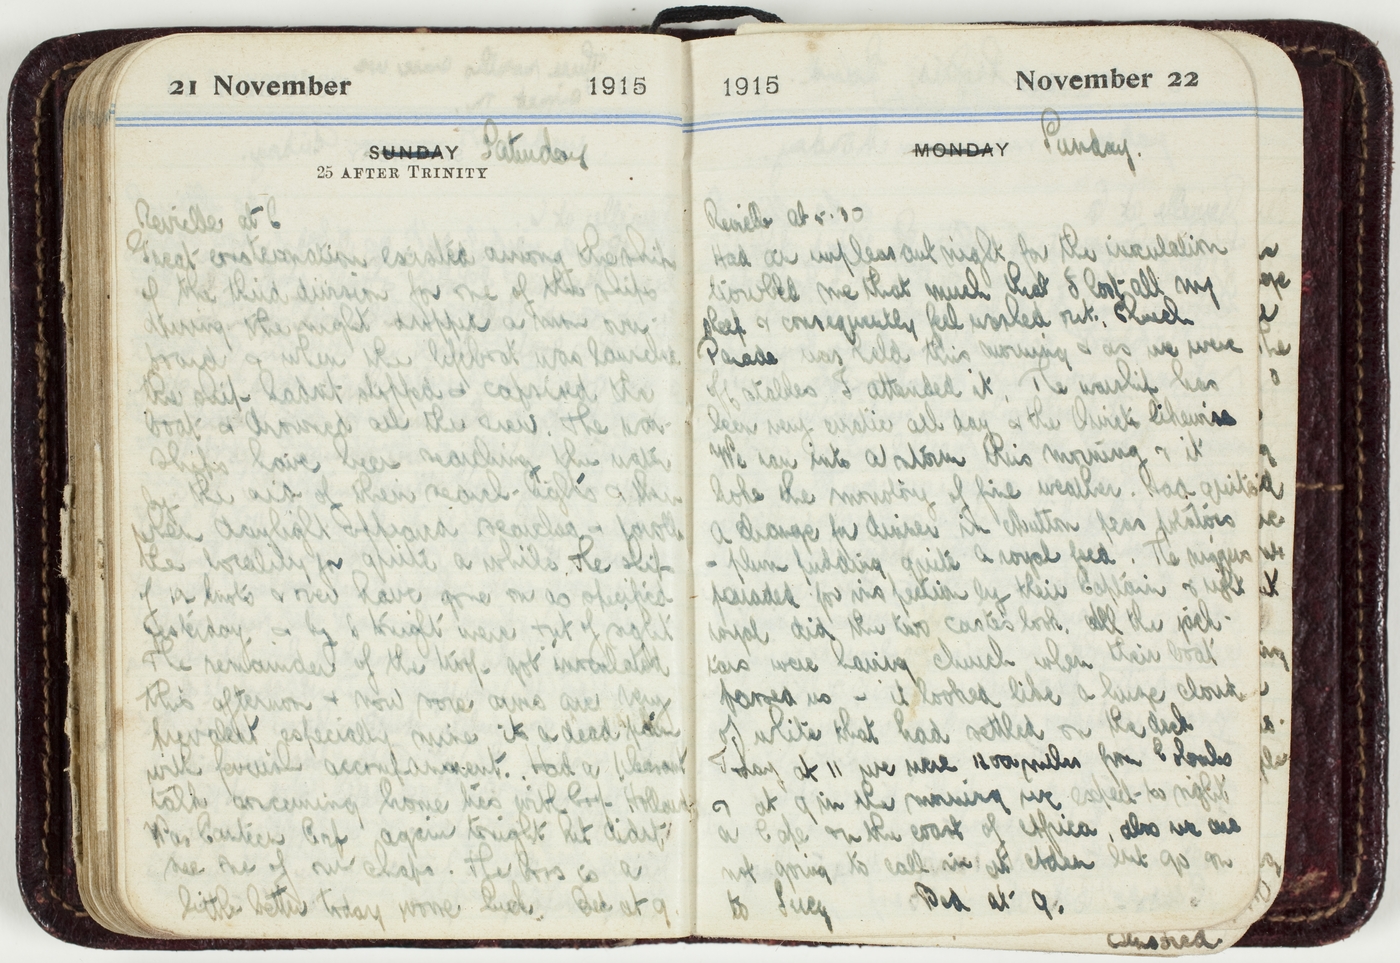 21 November 1915
SUNDAY Saturday
25 AFTER TRINITY
Reveille at 6
Great consternation existed among the ships
of the third division for one of the ships
during the night dropped a man over-
board & when the lifeboat was launched
the ship hadn't stopped & capsized the
boat & drowned all the crew. The war-
ships have been searching the water
by the aid of their search-lights & then
when daylight appeared searched & patrolled
the locality for quite a while. The ships
of 12 knots & over have gone on as specified
yesterday & by 6 tonight were out of sight
The remainder of the troop got inoculated
this afternoon & now sore arms are very
prevalent especially mine its a dead
with accompaniment. Had a pleasant
talk concerning home ties with Cpl Holland
Was Canteen Cpl again tonight but didn't
see one of our chaps. The hors is a
little better today worse luck. Bed at 9.
1915 November 22
MONDAY Sunday.
Reveille at 5.30
Had an unpleasant night for the inoculation
troubled me that much that I lost all my
sleep & consequently feel washed out. Church
Parade was held this morning & as we were
off stables I attended it. The warship has
been very erratic all day & the likewise
We ran into a storm this morning & it
broke the monotony of fine weather. Had quite
a change for dinner in mutton peas potatoes
& plum pudding quite a royal feed. The
paraded for inspection by their Captain & right
royal did the two look. All the jack-
tars were having church when their boat
passed us - it looked like a huge cloud
of white that had settled on the deck
Today at 11 we were 1200 miles from Colombo
& at 9 in the morning we expect to sight
a Cape on the coast of Africa, also we are
not going to call in at Aden but go on
to Suez Bed at 9.